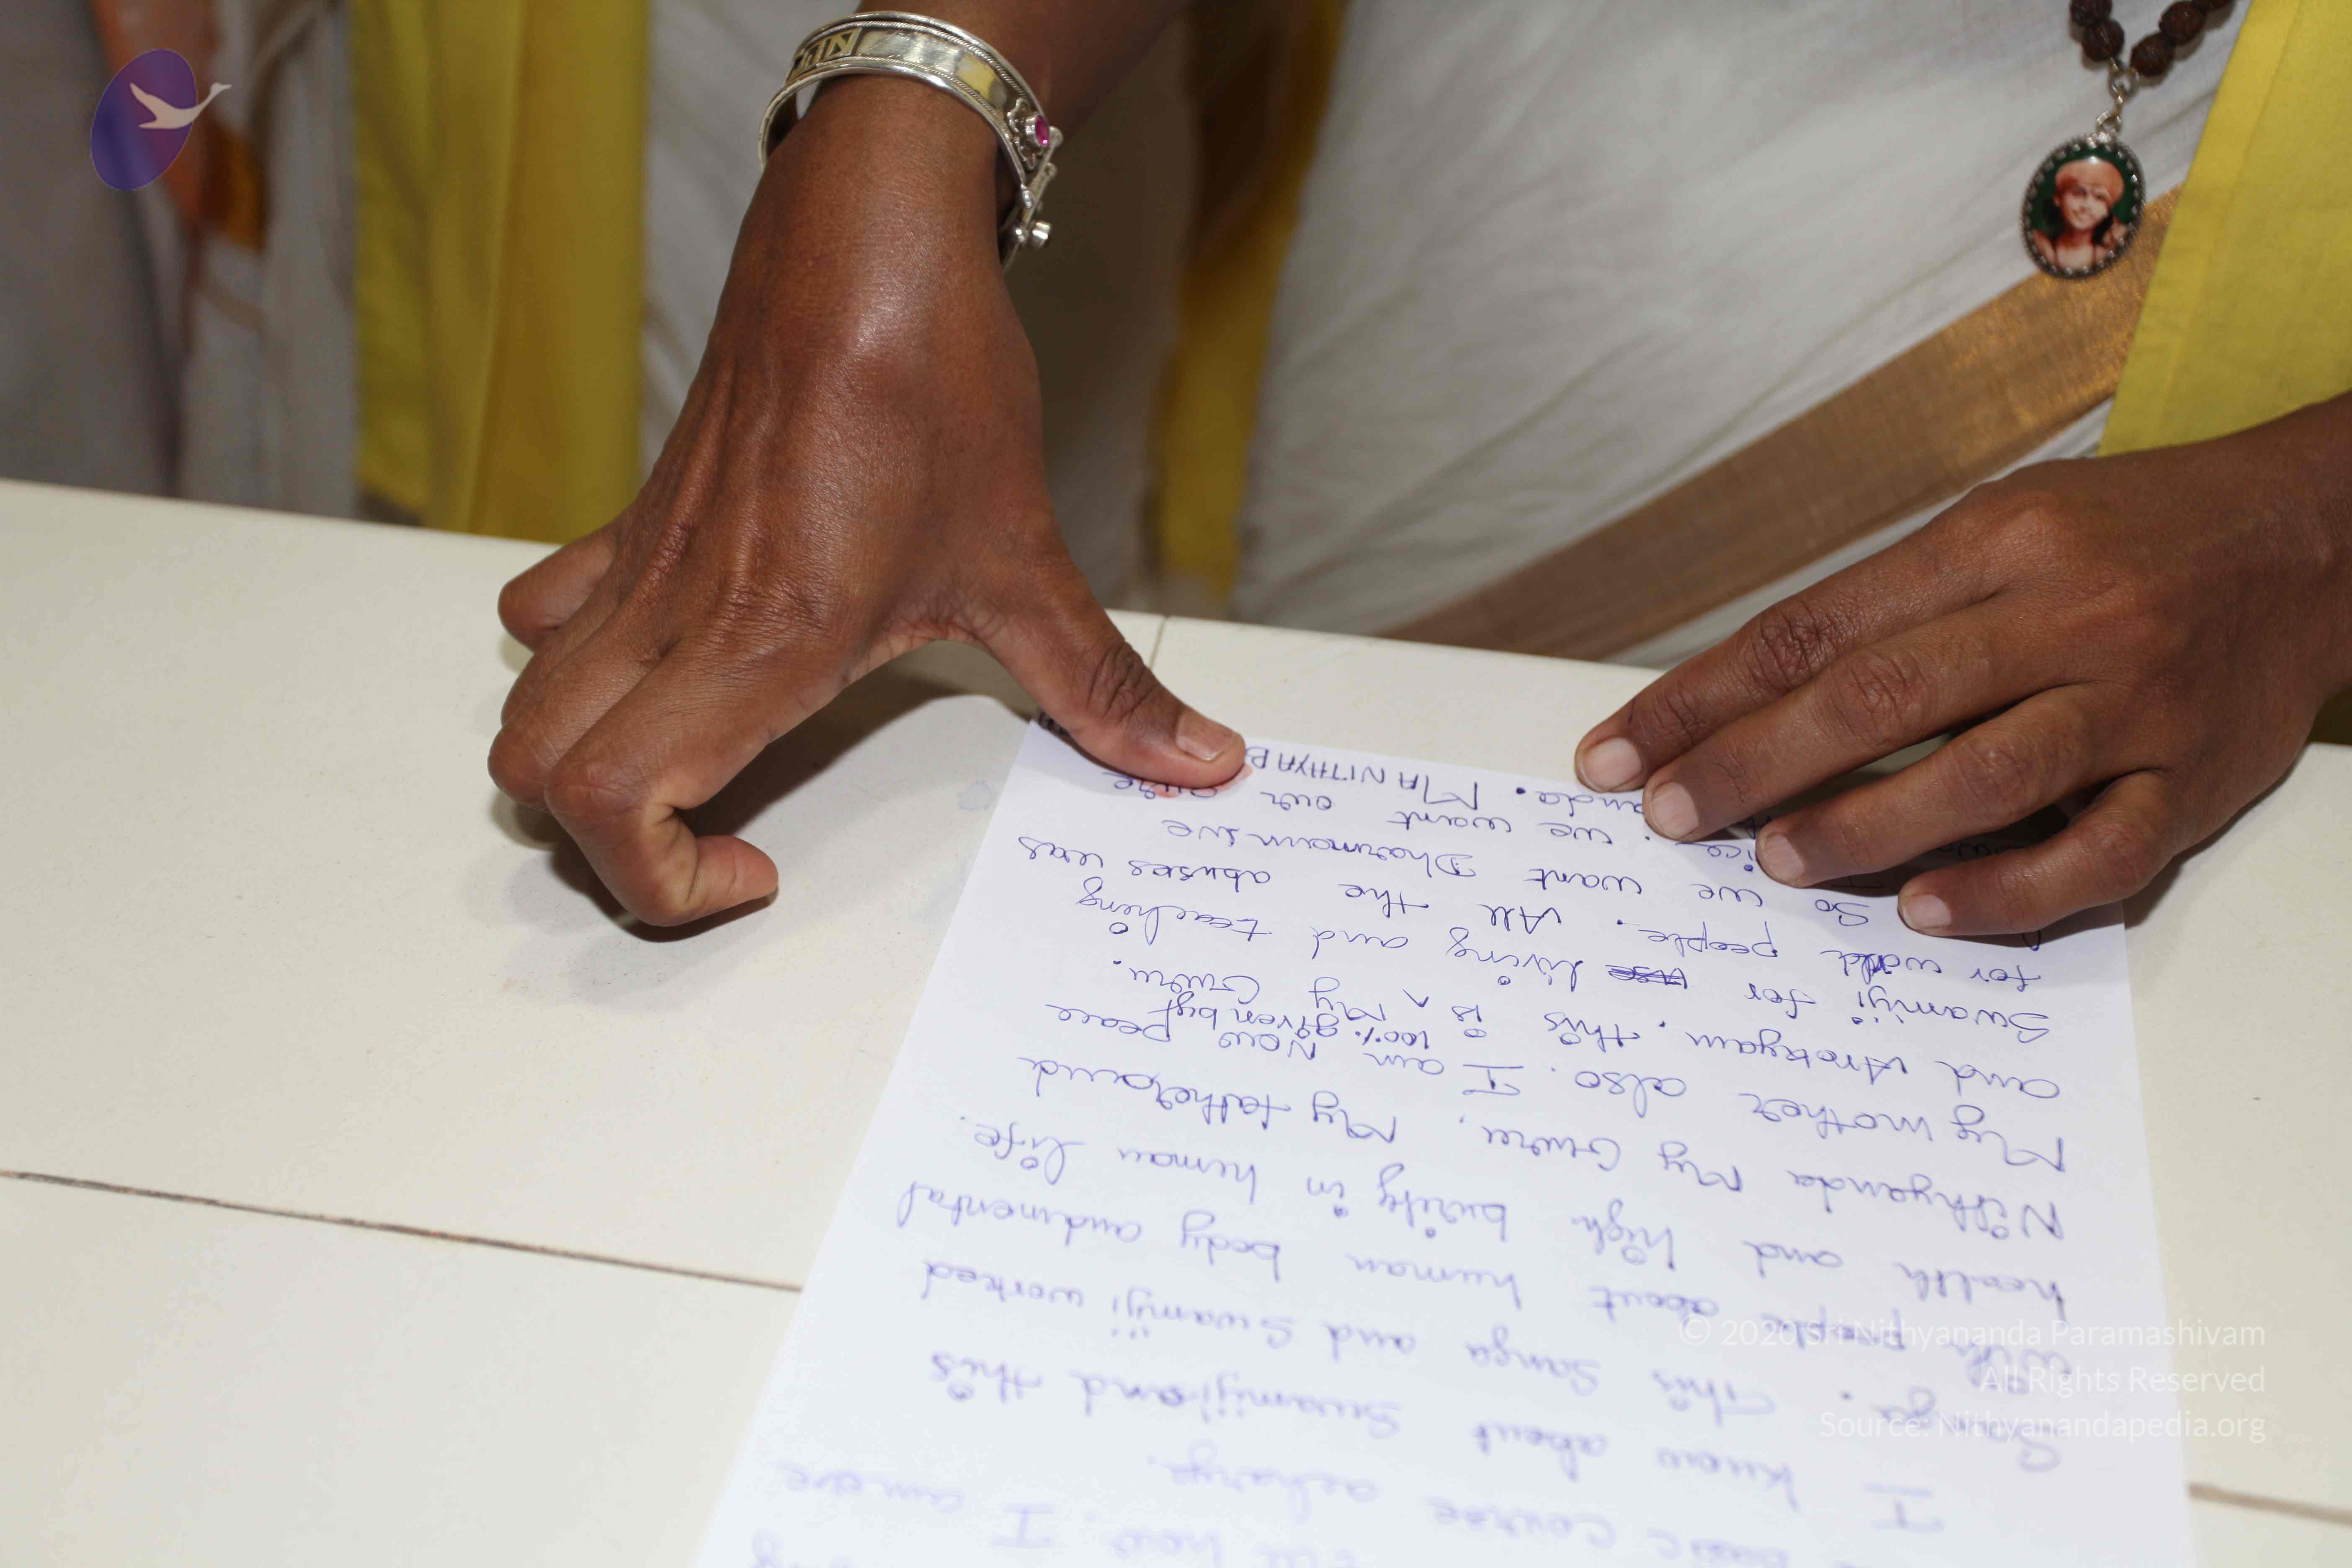 basic course acharya.
I know about Swamiji and this
Sanga. This Sanga and Swamiji worked
with people about human body and mental
health and high purity in human life.
Nithyanda My Guru, My father and
My mother also. I am now peace
and Arokyam. this is 100% given by My Guru.
Swamiji for living and teaching
for world people. All the abuses
So we want Dharmam
we want our
MA NITHYA
© 2020 Sri Nithyananda Paramashivam
All Rights Reserved
Source: Nithyanandapedia.org